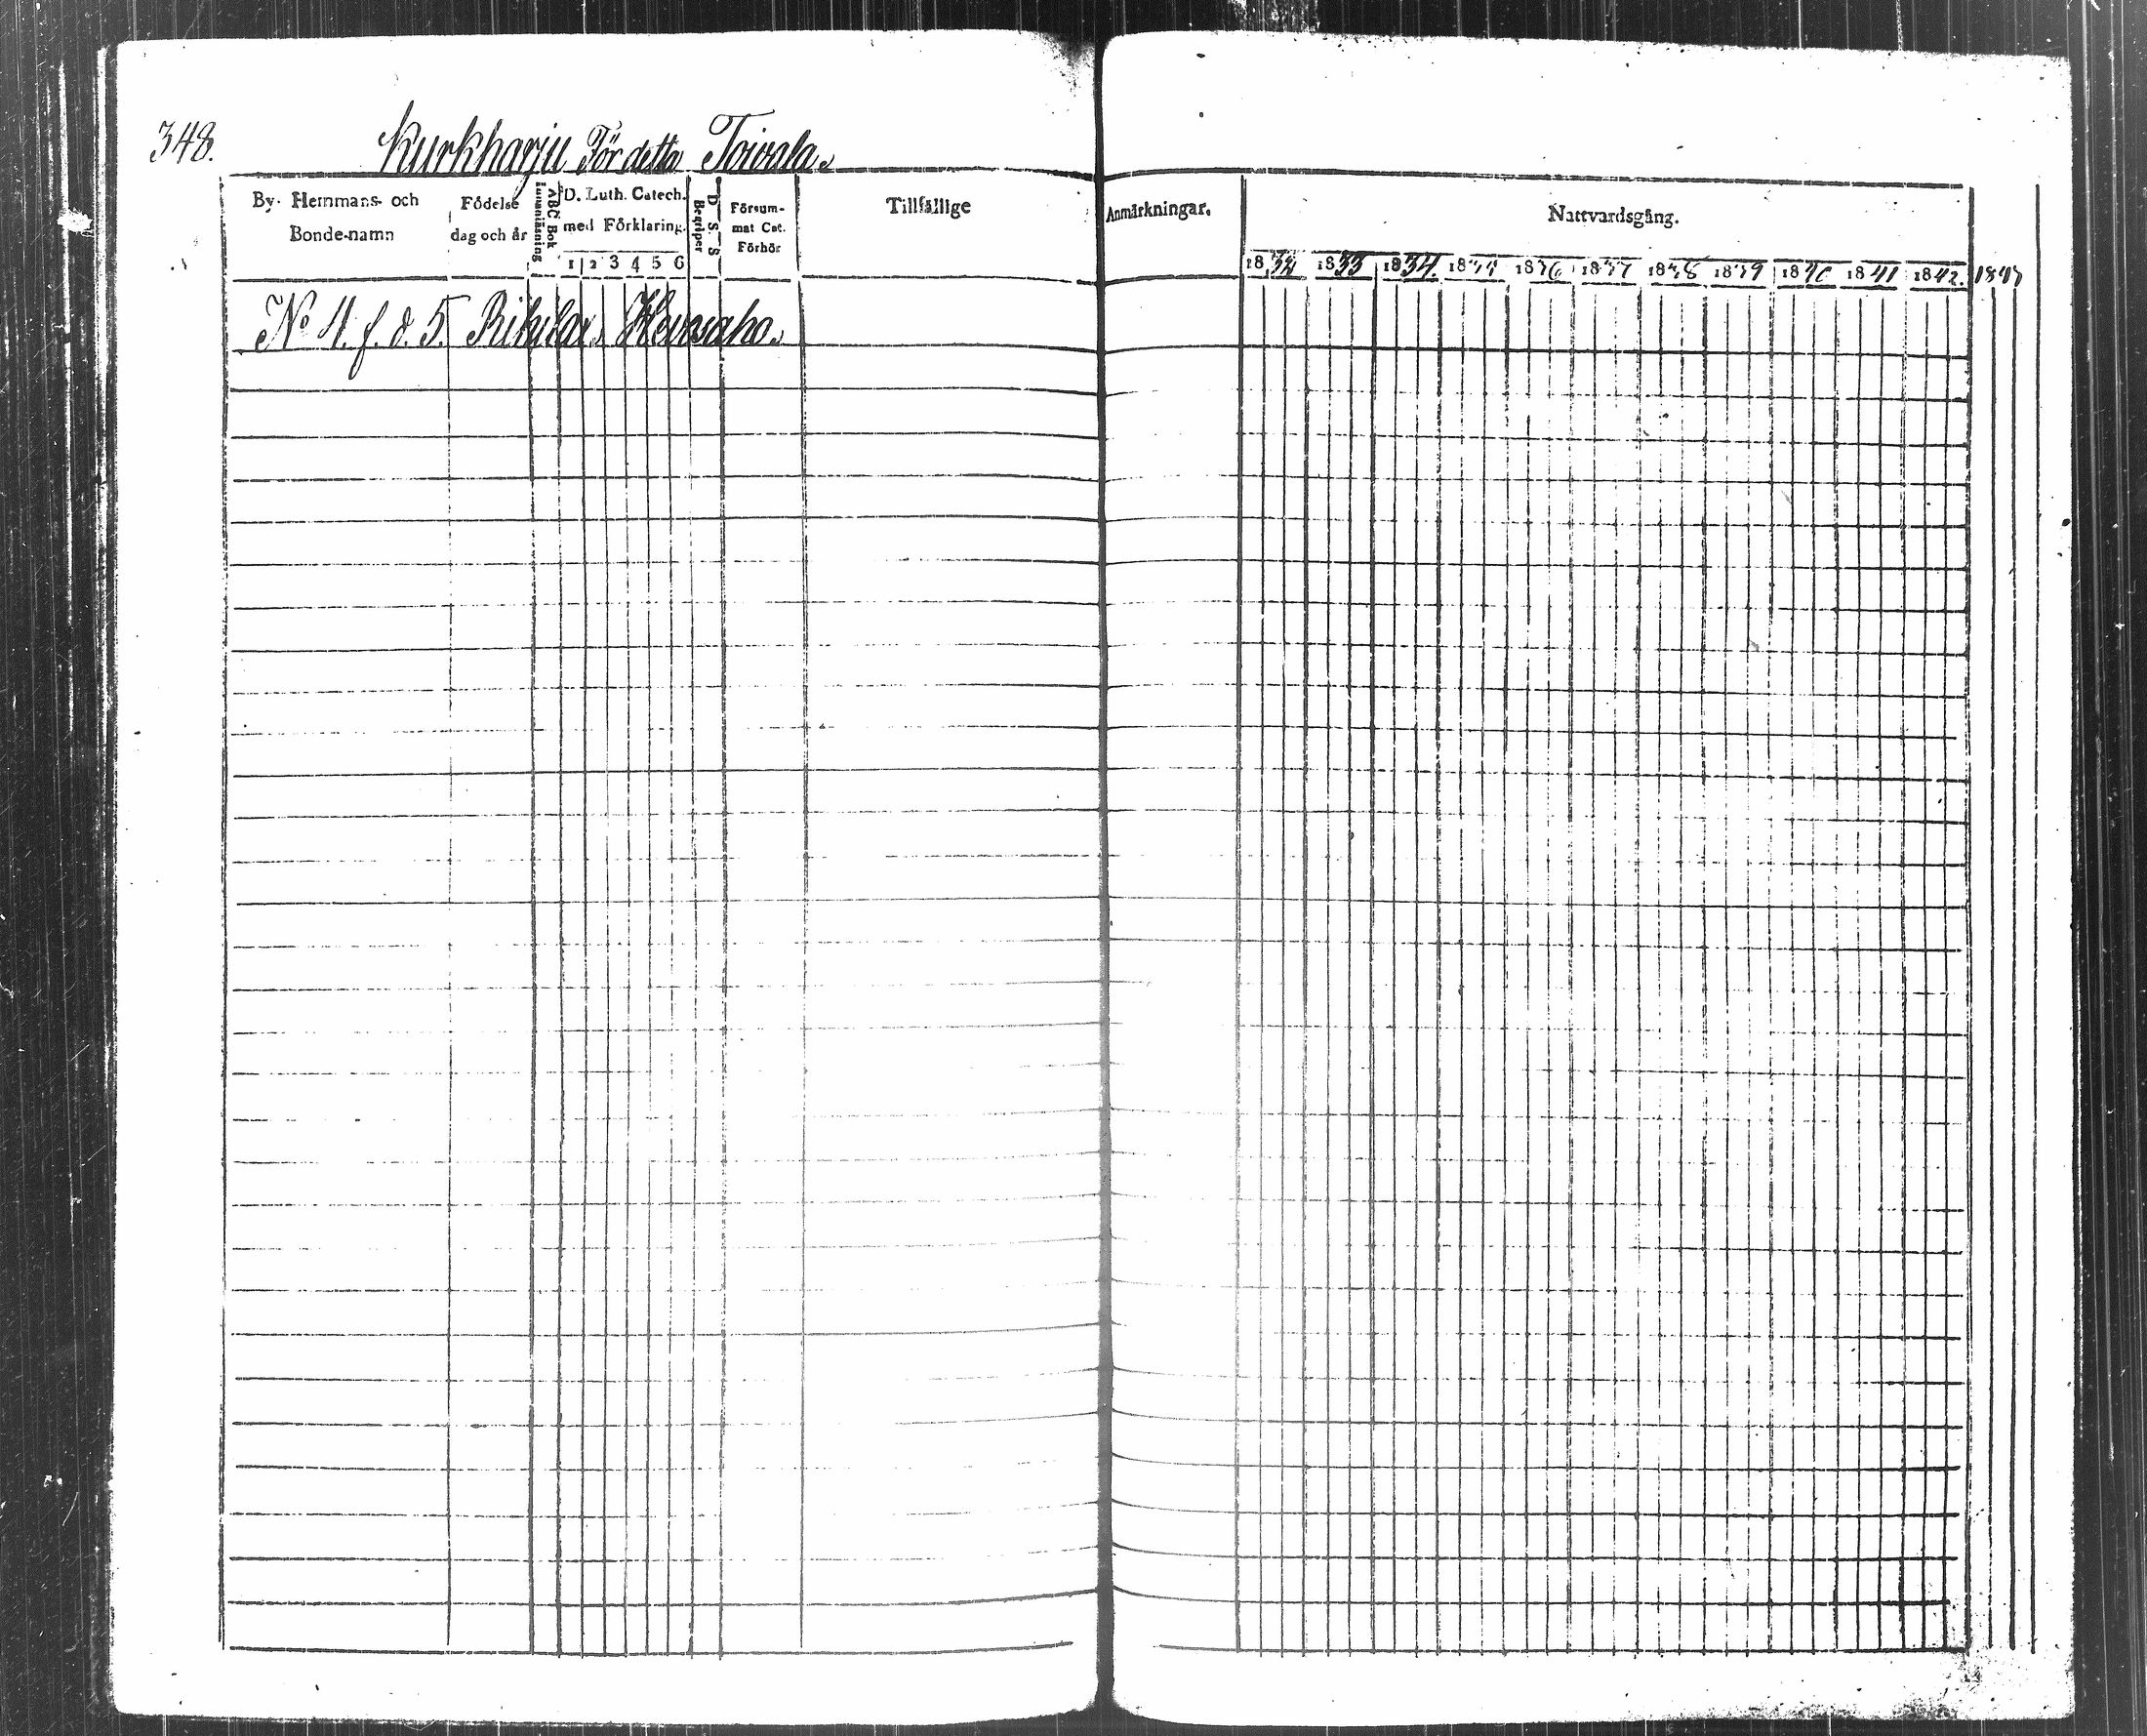 348.
Kurkharju För detta Toivala.
By- Hemmans- och Bonde-namn
Födelse dag och år
Innanläsning
ABC Bok
D. Luth. Catech. med Förklaring.
1 2 3 4 5 6
Begriper
D. S. S
Försum- mat Cat. Förhör
Tillfällige
Anmärkningar.
Nattvardsgång.
1832 1833 1834. 1835 1836 1837 1838 1839 1840 1841 1842. 1843
No 4. f. d. 5. Rihilax. Hevosaho.